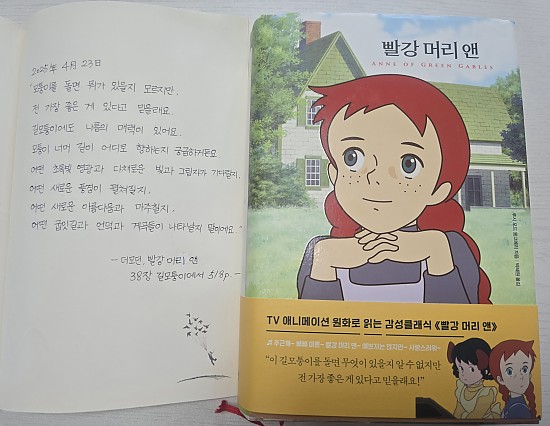 2025年 4月 23日
"모퉁이를 돌면 뭐가 있을지 모르지만,
전 가장 좋은 게 있다고 믿을래요.
길모퉁이에도 나름의 매력이 있어요.
모퉁이 너머 길이 어디로 향하는지 궁금하거든요.
어떤 초록빛 영광과 다채로운 빛과 그림자가 기다릴지.
어떤 새로운 풍경이 펼쳐질지.
어떤 새로운 아름다움과 마주칠지.
어떤 굽잇길과 언덕과 계곡들이 나타날지 말이에요."
- 더모던, 빨강 머리 앤
38장 길모퉁이에서 518p. -
빨강 머리 앤
ANNE OF GREEN GABLES
루시 모드 몽고메리 지음
TV 애니메이션 원화로 읽는 감성클래식 《빨강 머리 앤》
♬ 주근깨~ 빼빼 마른~ 빨강 머리 앤~ 예쁘지는 않지만~ 사랑스러워~
"이 길모퉁이를 돌면 무엇이 있을지 알 수 없지만
전 가장 좋은 게 있다고 믿을래요!"